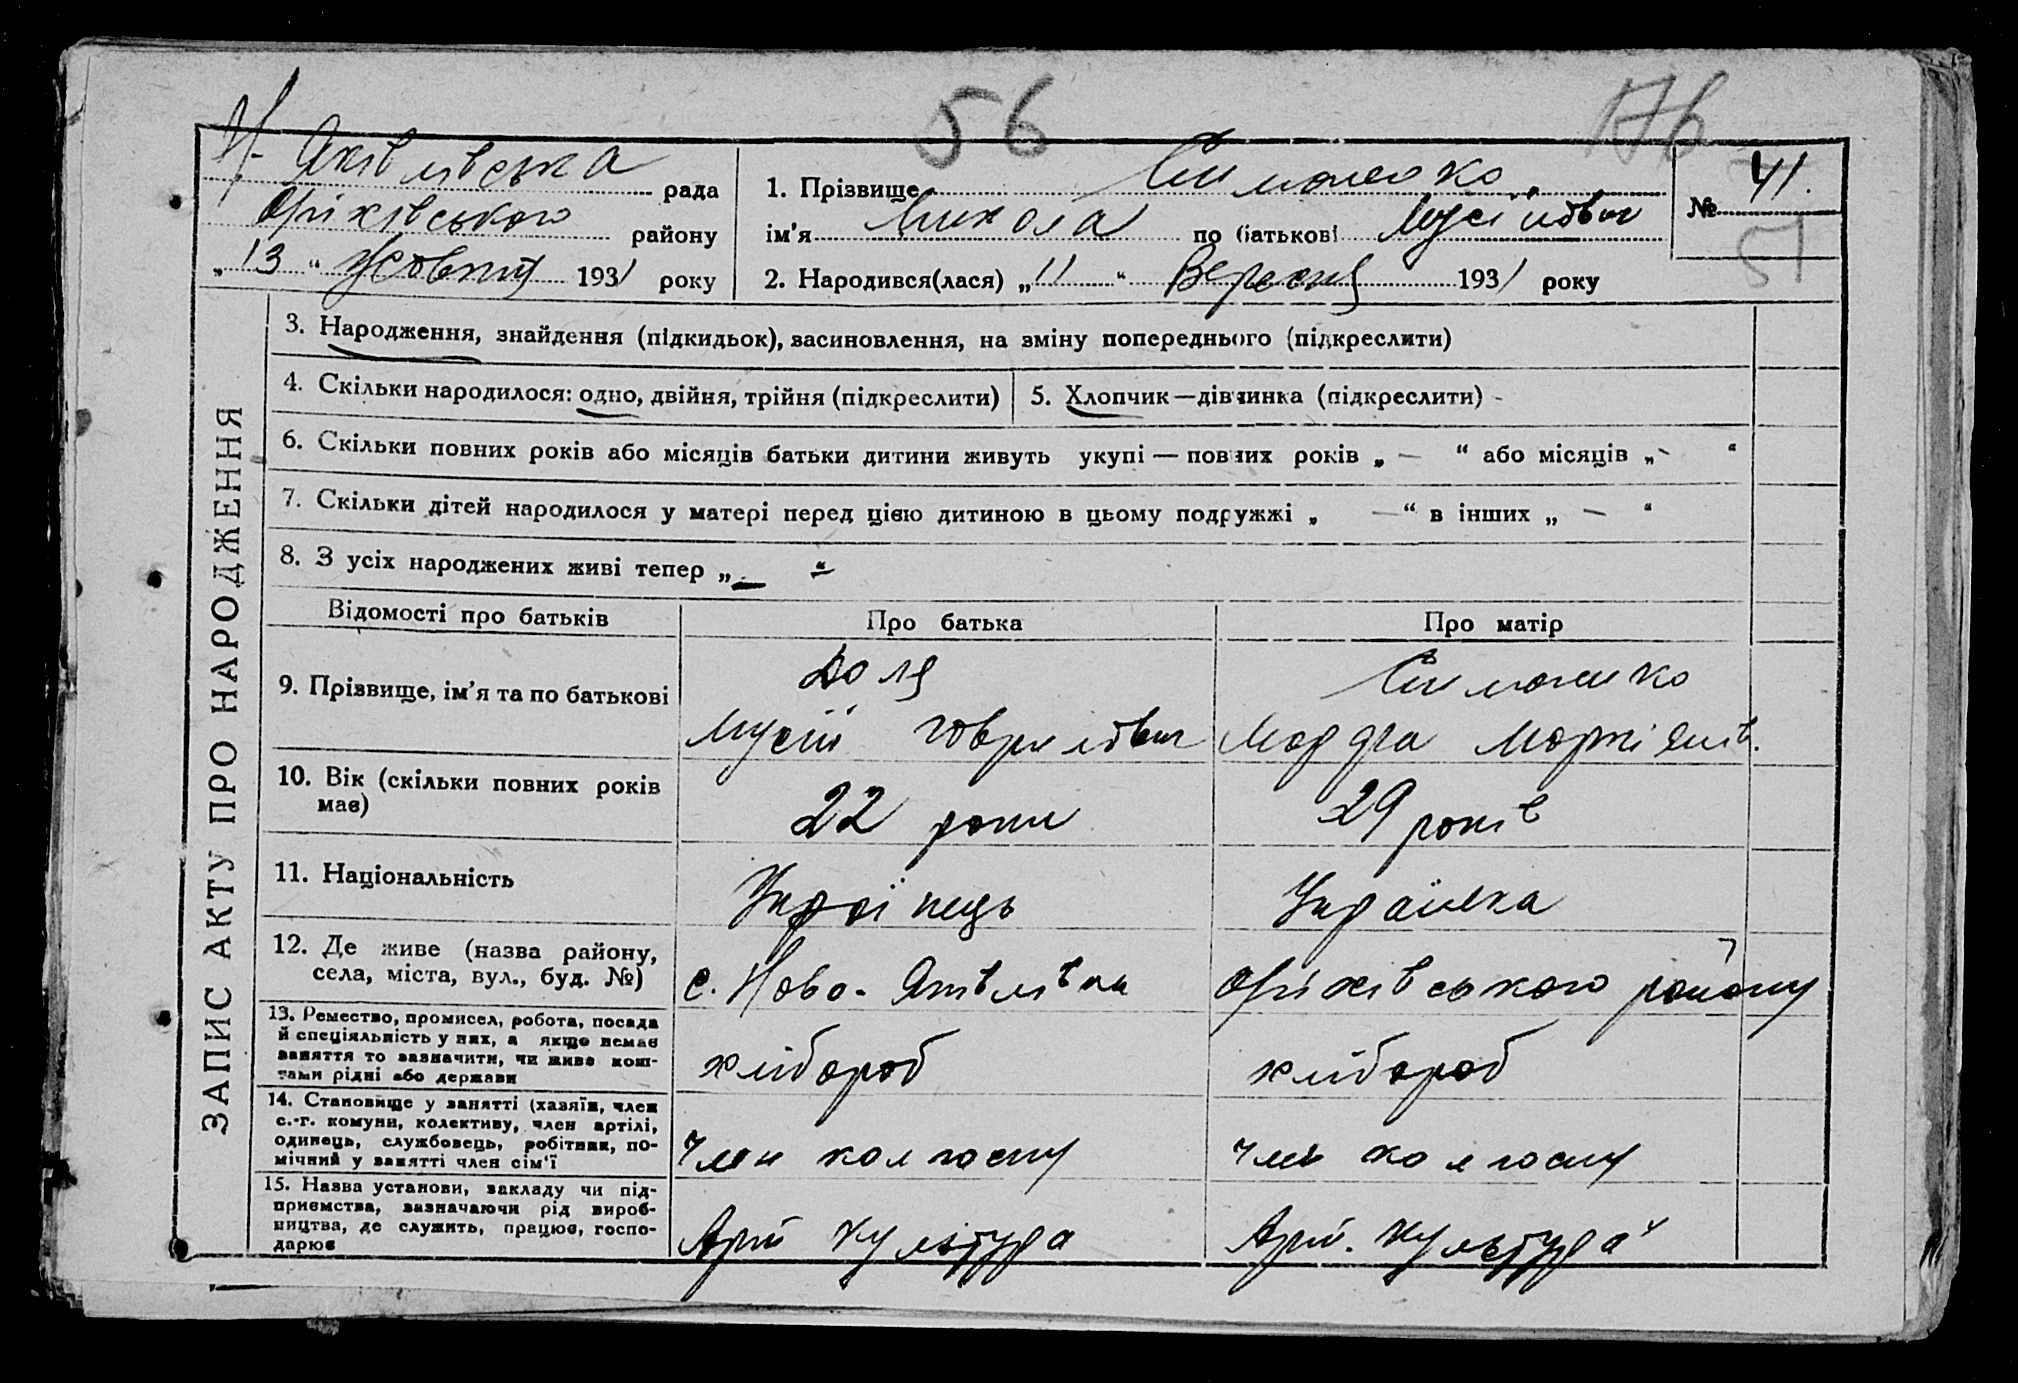 56
176
Н. Яківлівська рада
Оріхівського району
„13“ Жовтня 1931 року
1. Прізвище Симоненко
ім'я Микола по батькові Мусійович
2. Народився(лася) „11“ Вересня 1931 року
№ 41.
51
ЗАПИС АКТУ ПРО НАРОДЖЕННЯ
3. Народження, знайдення (підкидьок), засиновлення, на зміну попереднього (підкреслити)
4. Скільки народилося: одно, двійня, трійня (підкреслити)
5. Хлопчик—дівчинка (підкреслити) -
6. Скільки повних років або місяців батьки дитини живуть укупі — повних років „ — “ або місяців „ - “
7. Скільки дітей народилося у матері перед цією дитиною в цьому подружжі „ — “ в інших „ — “
8. З усіх народжених живі тепер „ — “
Відомості про батьків
Про батька
Про матір
9. Прізвище, ім'я та по батькові
Доля
Мусій Говрилович
Симоненко
Мотря Маркіянів.
10. Вік (скільки повних років
має)
22 роки
29 років
11. Національність
Українець
Українка
12. Де живе (назва району,
села, міста, вул., буд. №)
с. Ново-Яківлівка
Оріхівського району
13. Ремество, промисел, робота, посада
й спеціяльність у них, а якщо немає
заняття то зазначити, чи живе кош-
тами рідні або держави
хлібороб
хлібороб
14. Становище у занятті (хазяїн, член
с.-г. комуни, колективу, член артілі,
одинець, службовець, робітник, по-
мічний у занятті член сім'ї
Член колгоспу
член колгоспу
15. Назва установи, закладу чи під-
приємства, зазначаючи рід вироб-
ництва, де служить, працює, госпо-
дарює
Агрі Культура
Агрі. Культура"